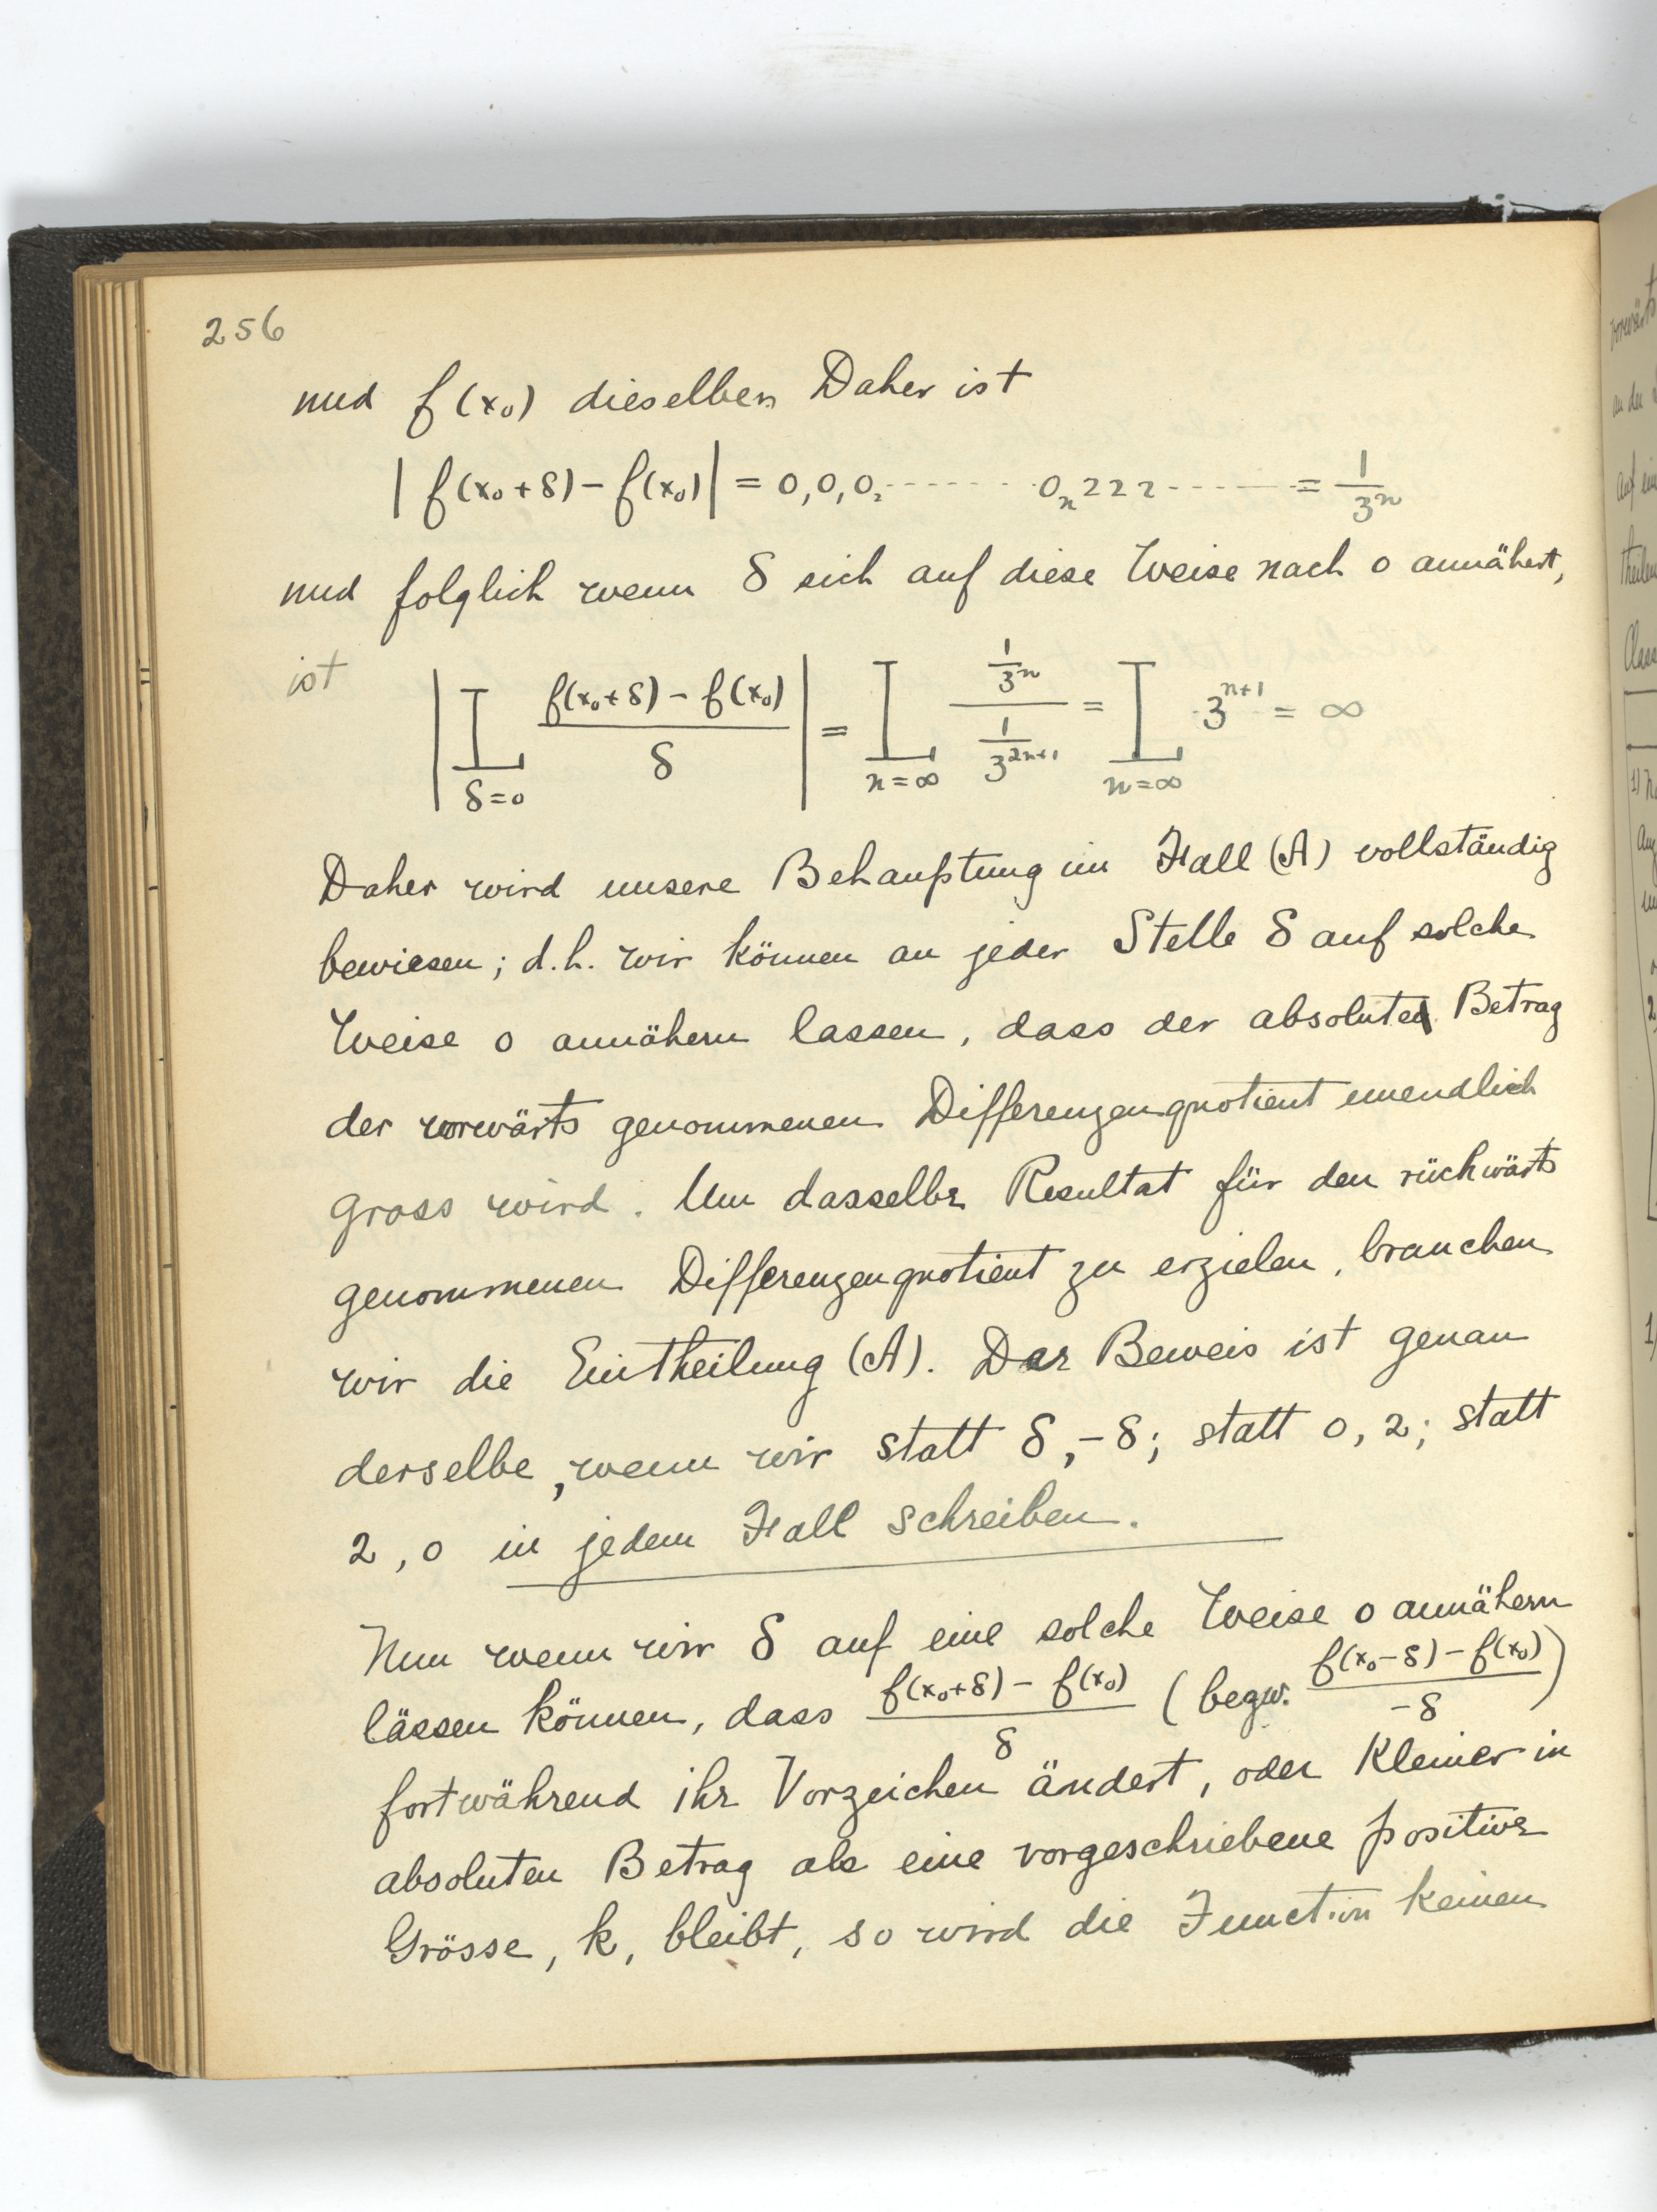 256
und f(x₀) dieselben Daher ist
|f(x₀+δ) − f(x₀)| = 0,0₁0₂ ------ 0ₙ222 ------ = 1/3ⁿ
und folglich wenn δ sich auf diese Weise nach 0 annähert,
ist |L_{δ=0} (f(x₀+δ) − f(x₀))/δ| = L_{n=∞} (1/3ⁿ)/(1/3²ⁿ⁺¹) = L_{n=∞} 3ⁿ⁺¹ = ∞
Daher wird unsere Behauptung im Fall (A) vollständig
bewiesen; d.h. wir können an jeder Stelle δ auf solche
Weise 0 annähern lassen, dass der absolute Betrag
der vorwärts genommenen Differenzenquotient unendlich
gross wird. Um dasselbe Resultat für den rückwärts
genommenen Differenzenquotient zu erzielen, brauchen
wir die Eintheilung (A). Der Beweis ist genau
derselbe, wenn wir statt δ, −δ; statt 0, 2; statt
2, 0 in jedem Fall schreiben.
Nun wenn wir δ auf eine solche Weise 0 annähern
lässen können, dass (f(x₀+δ) − f(x₀))/δ (bezw. (f(x₀−δ) − f(x₀))/−δ)
fortwährend ihr Vorzeichen ändert, oder kleiner in
absoluten Betrag als eine vorgeschriebene positive
Grösse, k, bleibt, so wird die Function keinen